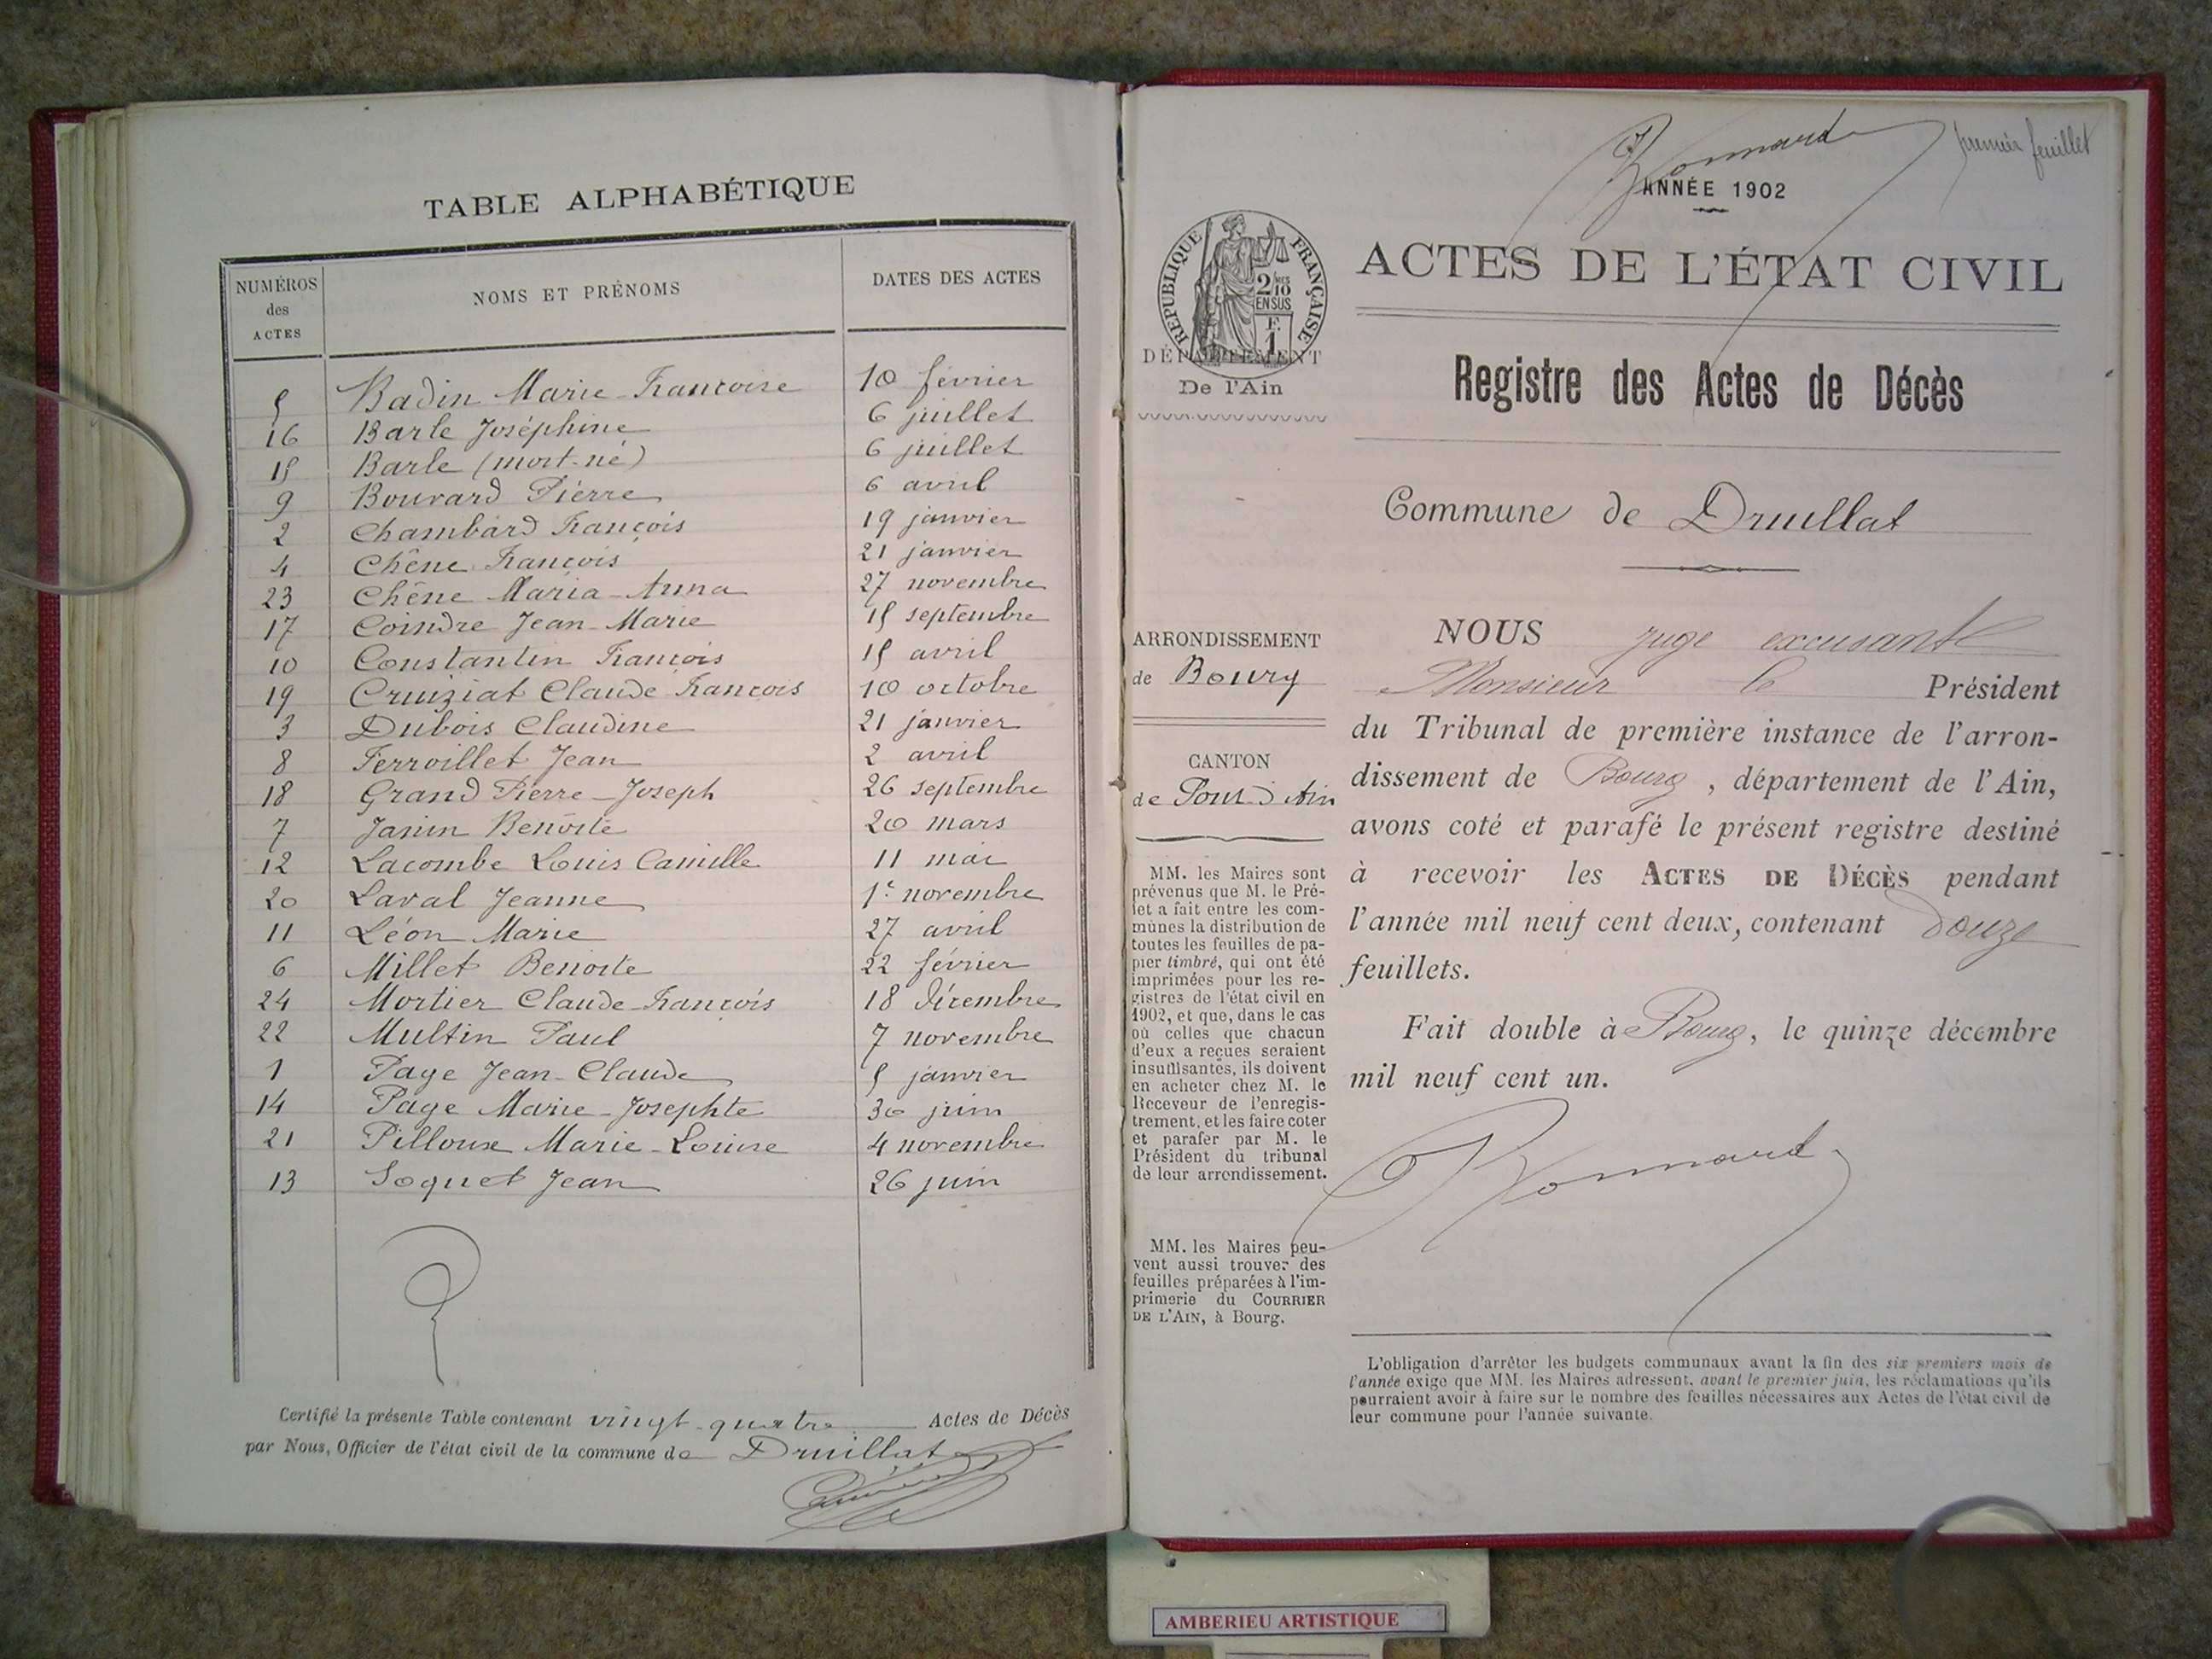 TABLE ALPHABÉTIQUE
NUMÉROS des ACTES NOMS ET PRÉNOMS DATES DES ACTES
5 Badin Marie-Françoise 10 février
16 Barle Joséphine 6 juillet
15 Barle (mort-né) 6 juillet
9 Bouvard Pierre 6 avril
2 Chambard François 19 janvier
4 Chêne François 21 janvier
23 Chêne Maria-Anna 27 novembre
17 Coindre Jean-Marie 15 septembre
10 Constantin François 15 avril
19 Cruiziat Claude François 10 octobre
3 Dubois Claudine 21 janvier
8 Ferroillet Jean 2 avril
18 Grand Pierre-Joseph 26 septembre
7 Janin Benoite 20 mars
12 Lacombe Louis Camille 11 mai
20 Laval Jeanne 1r novembre
11 Léon Marie 27 avril
6 Millet Benoite 22 février
24 Mortier Claude-François 18 décembre
22 Multin Paul 7 novembre
1 Page Jean-Claude 5 janvier
14 Page Marie-Josephte 30 juin
21 Pilloux Marie-Louise 4 novembre
13 Soquet Jean 26 juin
Certifié la présente Table contenant vingt-quatre Actes de Décès
par Nous, Officier de l'état civil de la commune de Druillat
Bonnard
premier feuillet
ANNÉE 1902
RÉPUBLIQUE FRANÇAISE
2/10 EN SUS
F. 1
DÉPARTEMENT
De l'Ain
ACTES DE L'ÉTAT CIVIL
Registre des Actes de Décès
Commune de Druillat
ARRONDISSEMENT
de Bourg
CANTON
de Pont-d'Ain
MM. les Maires sont
prévenus que M. le Pré-
fet a fait entre les com-
munes la distribution de
toutes les feuilles de pa-
pier timbré, qui ont été
imprimées pour les re-
gistres de l'état civil en
1902, et que, dans le cas
où celles que chacun
d'eux a reçues seraient
insuffisantes, ils doivent
en acheter chez M. le
Receveur de l'enregis-
trement, et les faire coter
et parafer par M. le
Président du tribunal
de leur arrondissement.
MM. les Maires peu-
vent aussi trouver des
feuilles préparées à l'im-
primerie du COURRIER
DE L'AIN, à Bourg.
NOUS juge excusant
Monsieur le Président
du Tribunal de première instance de l'arron-
dissement de Bourg, département de l'Ain,
avons coté et parafé le présent registre destiné
à recevoir les ACTES DE DÉCÈS pendant
l'année mil neuf cent deux, contenant douze
feuillets.
Fait double à Bourg, le quinze décembre
mil neuf cent un.
Bonnard
L'obligation d'arrêter les budgets communaux avant la fin des six premiers mois de
l'année exige que MM. les Maires adressent, avant le premier juin, les réclamations qu'ils
pourraient avoir à faire sur le nombre des feuilles nécessaires aux Actes de l'état civil de
leur commune pour l'année suivante.
AMBERIEU ARTISTIQUE